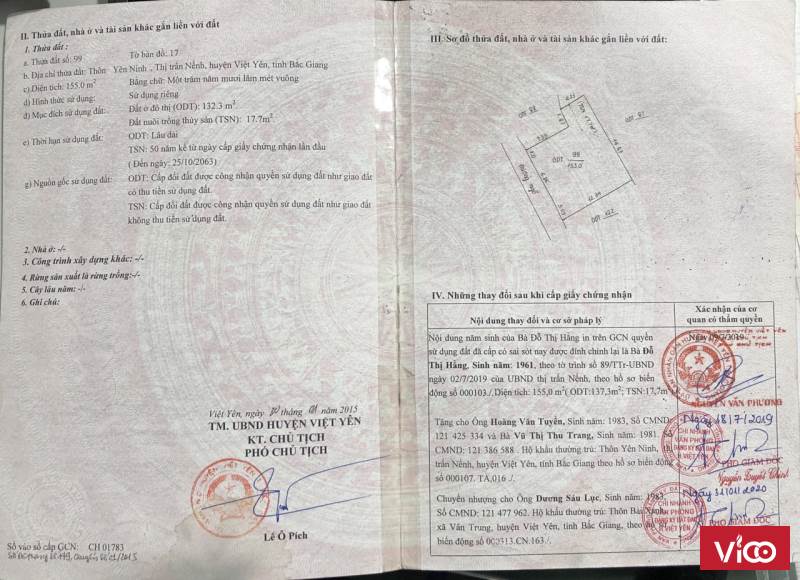 II. Thửa đất, nhà ở và tài sản khác gắn liền với đất
1. Thửa đất:
a. Thửa đất số: 99 Tờ bản đồ: 17
b. Địa chỉ thửa đất: Thôn Yên Ninh, Thị trấn Nếnh, huyện Việt Yên, tỉnh Bắc Giang
c. Diện tích: 155.0 m² Bằng chữ: Một trăm năm mươi lăm mét vuông
d) Hình thức sử dụng: Sử dụng riêng
đ) Mục đích sử dụng đất: Đất ở đô thị (ODT): 132.3 m²
Đất nuôi trồng thủy sản (TSN): 17.7m²
e) Thời hạn sử dụng đất: ODT: Lâu dài
TSN: 50 năm kể từ ngày cấp giấy chứng nhận lần đầu
( Đến ngày: 25/10/2063)
g) Nguồn gốc sử dụng đất: ODT: Cấp đổi đất được công nhận quyền sử dụng đất như giao đất
có thu tiền sử dụng đất.
TSN: Cấp đổi đất được công nhận quyền sử dụng đất như giao đất
không thu tiền sử dụng đất.
2. Nhà ở: -/-
3. Công trình xây dựng khác: -/-
4. Rừng sản xuất là rừng trồng:-/-
5. Cây lâu năm: -/-
6. Ghi chú:
Việt Yên, ngày tháng 01 năm 2015
TM. UBND HUYỆN VIỆT YÊN
KT. CHỦ TỊCH
PHÓ CHỦ TỊCH
Lê Ô Pích
Số vào sổ cấp GCN: CH 01783
III. Sơ đồ thửa đất, nhà ở và tài sản khác gắn liền với đất:
ODT 98
ODT 97
ODT 99
ODT 122
IV. Những thay đổi sau khi cấp giấy chứng nhận
Nội dung thay đổi và cơ sở pháp lý
Xác nhận của cơ
quan có thẩm quyền
Nội dung năm sinh của Bà Đỗ Thị Hằng in trên GCN quyền
sử dụng đất đã cấp có sai sót nay được đính chính lại là Bà Đỗ
Thị Hằng, Sinh năm: 1961, theo tờ trình số 89/TTr-UBND
ngày 02/7/2019 của UBND thị trấn Nếnh, theo hồ sơ biến
động số 000103./. Diện tích: 155,0 m²( ODT:137,3m²; TSN:17,7m²
NGUYỄN VĂN PHƯƠNG
Tặng cho Ông Hoàng Văn Tuyển, Sinh năm: 1983, Số CMND:
121 425 334 và Bà Vũ Thị Thu Trang, Sinh năm: 1981. Số
CMND: 121 386 588 . Hộ khẩu thường trú: Thôn Yên Ninh, thị
trấn Nếnh, huyện Việt Yên, tỉnh Bắc Giang theo hồ sơ biến động
số 000107. TA.016 ./.
Ngày 18/7/2019
CHI NHÁNH
VĂN PHÒNG
ĐĂNG KÝ ĐẤT ĐAI
H VIỆT YÊN
PHÓ GIÁM ĐỐC
Chuyển nhượng cho Ông Dương Sáu Lục, Sinh năm: 1983,
Số CMND: 121 477 962. Hộ khẩu thường trú: Thôn Bài Xanh,
xã Vân Trung, huyện Việt Yên, tỉnh Bắc Giang, theo hồ sơ
biến động số 000313.CN.163./.
CHI NHÁNH
VĂN PHÒNG
ĐĂNG KÝ ĐẤT ĐAI
H VIỆT YÊN
PHÓ GIÁM ĐỐC
Vico